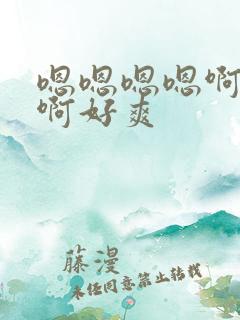 嗯嗯嗯嗯啊
啊好爽
藤漫
未经同意禁止转载